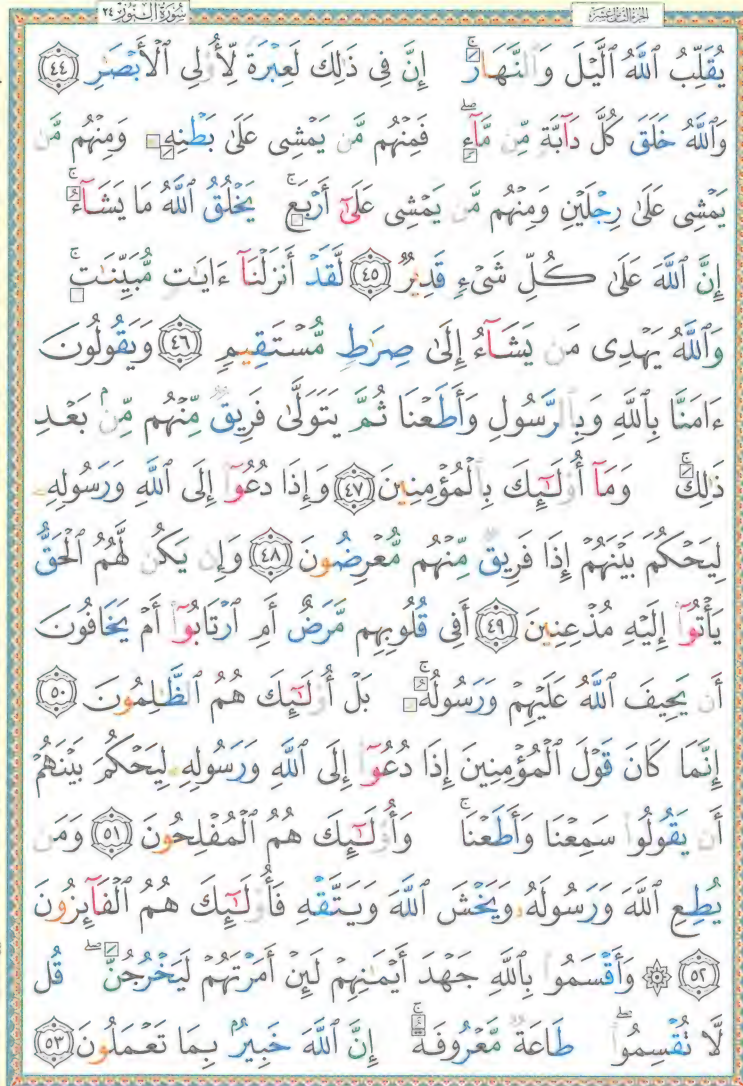 الجزء الثامن عشر
سُورَةُ النُّورِ ٢٤
يُقَلِّبُ ٱللَّهُ ٱلَّيْلَ وَٱلنَّهَارَ ۚ إِنَّ فِى ذَٰلِكَ لَعِبْرَةً لِّأُو۟لِى ٱلْأَبْصَٰرِ ٤٤
وَٱللَّهُ خَلَقَ كُلَّ دَآبَّةٍ مِّن مَّآءٍ ۖ فَمِنْهُم مَّن يَمْشِى عَلَىٰ بَطْنِهِۦ وَمِنْهُم مَّن
يَمْشِى عَلَىٰ رِجْلَيْنِ وَمِنْهُم مَّن يَمْشِى عَلَىٰٓ أَرْبَعٍ ۚ يَخْلُقُ ٱللَّهُ مَا يَشَآءُ ۚ
إِنَّ ٱللَّهَ عَلَىٰ كُلِّ شَىْءٍ قَدِيرٌ ٤٥ لَّقَدْ أَنزَلْنَآ ءَايَٰتٍ مُّبَيِّنَٰتٍ ۚ
وَٱللَّهُ يَهْدِى مَن يَشَآءُ إِلَىٰ صِرَٰطٍ مُّسْتَقِيمٍ ٤٦ وَيَقُولُونَ
ءَامَنَّا بِٱللَّهِ وَبِٱلرَّسُولِ وَأَطَعْنَا ثُمَّ يَتَوَلَّىٰ فَرِيقٌ مِّنْهُم مِّنۢ بَعْدِ
ذَٰلِكَ ۚ وَمَآ أُو۟لَٰٓئِكَ بِٱلْمُؤْمِنِينَ ٤٧ وَإِذَا دُعُوٓا۟ إِلَى ٱللَّهِ وَرَسُولِهِۦ
لِيَحْكُمَ بَيْنَهُمْ إِذَا فَرِيقٌ مِّنْهُم مُّعْرِضُونَ ٤٨ وَإِن يَكُن لَّهُمُ ٱلْحَقُّ
يَأْتُوٓا۟ إِلَيْهِ مُذْعِنِينَ ٤٩ أَفِى قُلُوبِهِم مَّرَضٌ أَمِ ٱرْتَابُوٓا۟ أَمْ يَخَافُونَ
أَن يَحِيفَ ٱللَّهُ عَلَيْهِمْ وَرَسُولُهُۥ ۚ بَلْ أُو۟لَٰٓئِكَ هُمُ ٱلظَّٰلِمُونَ ٥٠
إِنَّمَا كَانَ قَوْلَ ٱلْمُؤْمِنِينَ إِذَا دُعُوٓا۟ إِلَى ٱللَّهِ وَرَسُولِهِۦ لِيَحْكُمَ بَيْنَهُمْ
أَن يَقُولُوا۟ سَمِعْنَا وَأَطَعْنَا ۚ وَأُو۟لَٰٓئِكَ هُمُ ٱلْمُفْلِحُونَ ٥١ وَمَن
يُطِعِ ٱللَّهَ وَرَسُولَهُۥ وَيَخْشَ ٱللَّهَ وَيَتَّقْهِ فَأُو۟لَٰٓئِكَ هُمُ ٱلْفَآئِزُونَ
٥٢ ۞ وَأَقْسَمُوا۟ بِٱللَّهِ جَهْدَ أَيْمَٰنِهِمْ لَئِنْ أَمَرْتَهُمْ لَيَخْرُجُنَّ ۖ قُل
لَّا تُقْسِمُوا۟ ۖ طَاعَةٌ مَّعْرُوفَةٌ ۚ إِنَّ ٱللَّهَ خَبِيرٌۢ بِمَا تَعْمَلُونَ ٥٣